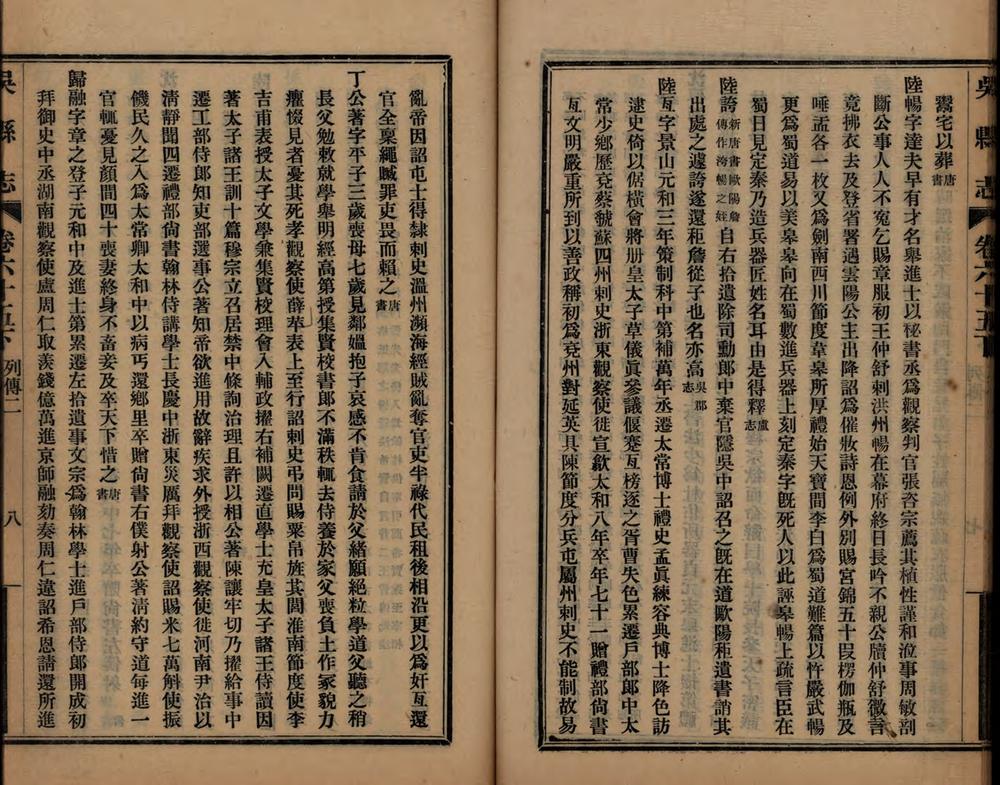 鬻宅以葬唐書
陸暢字達夫早有才名舉進士以秘書丞爲觀察判官張咨宗薦其植性謹和涖事周敏剖
斷公事人人不寃乞賜章服初王仲舒刺洪州暢在幕府終日長吟不親公牘仲舒微言
竟拂衣去及登省署遇雲陽公主出降詔爲催妝詩恩例外別賜宮錦五十段楞伽瓶及
唾盂各一枚又爲劍南西川節度韋皋所厚禮始天寶間李白爲蜀道難篇以忤嚴武暢
更爲蜀道易以美皋皋向在蜀數進兵器上刻定秦字旣死人以此誣皋暢上疏言臣在
蜀日見定秦乃造兵器匠姓名耳由是得釋盧志
陸誇新唐書歐陽詹傳作洿暢之姪自右拾遺除司勳郎中棄官隱吳中詔召之旣在道歐陽秬遺書誚其
出處之遽誇遂還秬詹從子也名亦高吳郡志
陸亙字景山元和三年策制科中第補萬年丞遷太常博士禮史孟眞練容典博士降色訪
逮史倚以倨橫會將册皇太子草儀眞參議偃蹇亙榜逐之胥曹失色累遷戶部郎中太
常少鄉歷兗蔡虢蘇四州刺史浙東觀察使徙宣歙太和八年卒年七十一贈禮部尙書
亙文明嚴重所到以善政稱初爲兗州對延英具陳節度分兵屯屬州刺史不能制故易
亂帝因詔屯士得隸刺史溫州瀕海經賊亂奪官吏半祿代民租後相沿更以爲奸亙還
官全稟繩贓罪吏畏而賴之唐書
丁公著字平子三歲喪母七歲見鄰媼抱子哀感不肯食請於父緒願絕粒學道父聽之稍
長父勉敕就學舉明經高第授集賢校書郎不滿秩輒去侍養於家父喪負土作冢貌力
癯惙見者憂其死孝觀察使薛苹表上至行詔刺史弔問賜粟帛旌其閭淮南節度使李
吉甫表授太子文學兼集賢校理會入輔政擢右補闕遷直學士充皇太子諸王侍讀因
著太子諸王訓十篇穆宗立召居禁中條詢治理且許以相公著陳讓牢切乃擢給事中
遷工部侍郎知吏部選事公著知帝欲進用故辭疾求外授浙西觀察使徙河南尹治以
淸靜聞四遷禮部尙書翰林侍講學士長慶中浙東災厲拜觀察使詔賜米七萬斛使振
饑民久之入爲太常卿太和中以病丐還鄉里卒贈尙書右僕射公著淸約守道每進一
官輒憂見顏間四十喪妻終身不畜妾及卒天下惜之唐書
歸融字章之登子元和中及進士第累遷左拾遺事文宗爲翰林學士進戶部侍郎開成初
拜御史中丞湖南觀察使盧周仁取羨錢億萬進京師融劾奏周仁違詔希恩請還所進
吳縣志 卷六十五下 列傳二 八